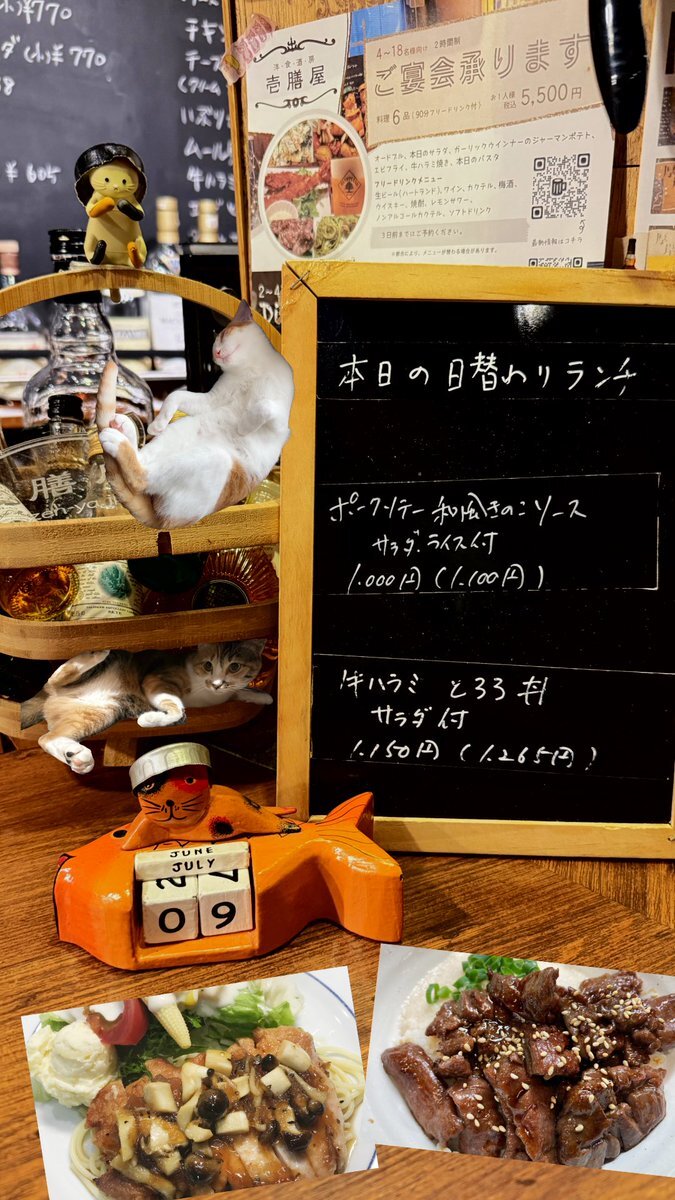 (小)¥770
ダ(小)¥770
¥605
チキン
洋・食・酒・房
壱膳屋
4〜18名様向け 2時間制
ご宴会承ります
料理6品(90分フリードリンク付)
お1人様
税込 5,500円
オードブル、本日のサラダ、ガーリックウインナーのジャーマンポテト、
エビフライ、牛ハラミ焼き、本日のパスタ
フリードリンクメニュー
生ビール(ハートランド)、ワイン、カクテル、梅酒、
ウイスキー、焼酎、レモンサワー、
ノンアルコールカクテル、ソフトドリンク
3日前までにご予約ください。
最新情報はコチラ
本日の日替わりランチ
ポークソテー和風きのこソース
サラダ.ライス付
1.000円(1.100円)
牛ハラミ とろろ丼
サラダ付
1.150円(1.265円)
膳
JUNE
JULY
09